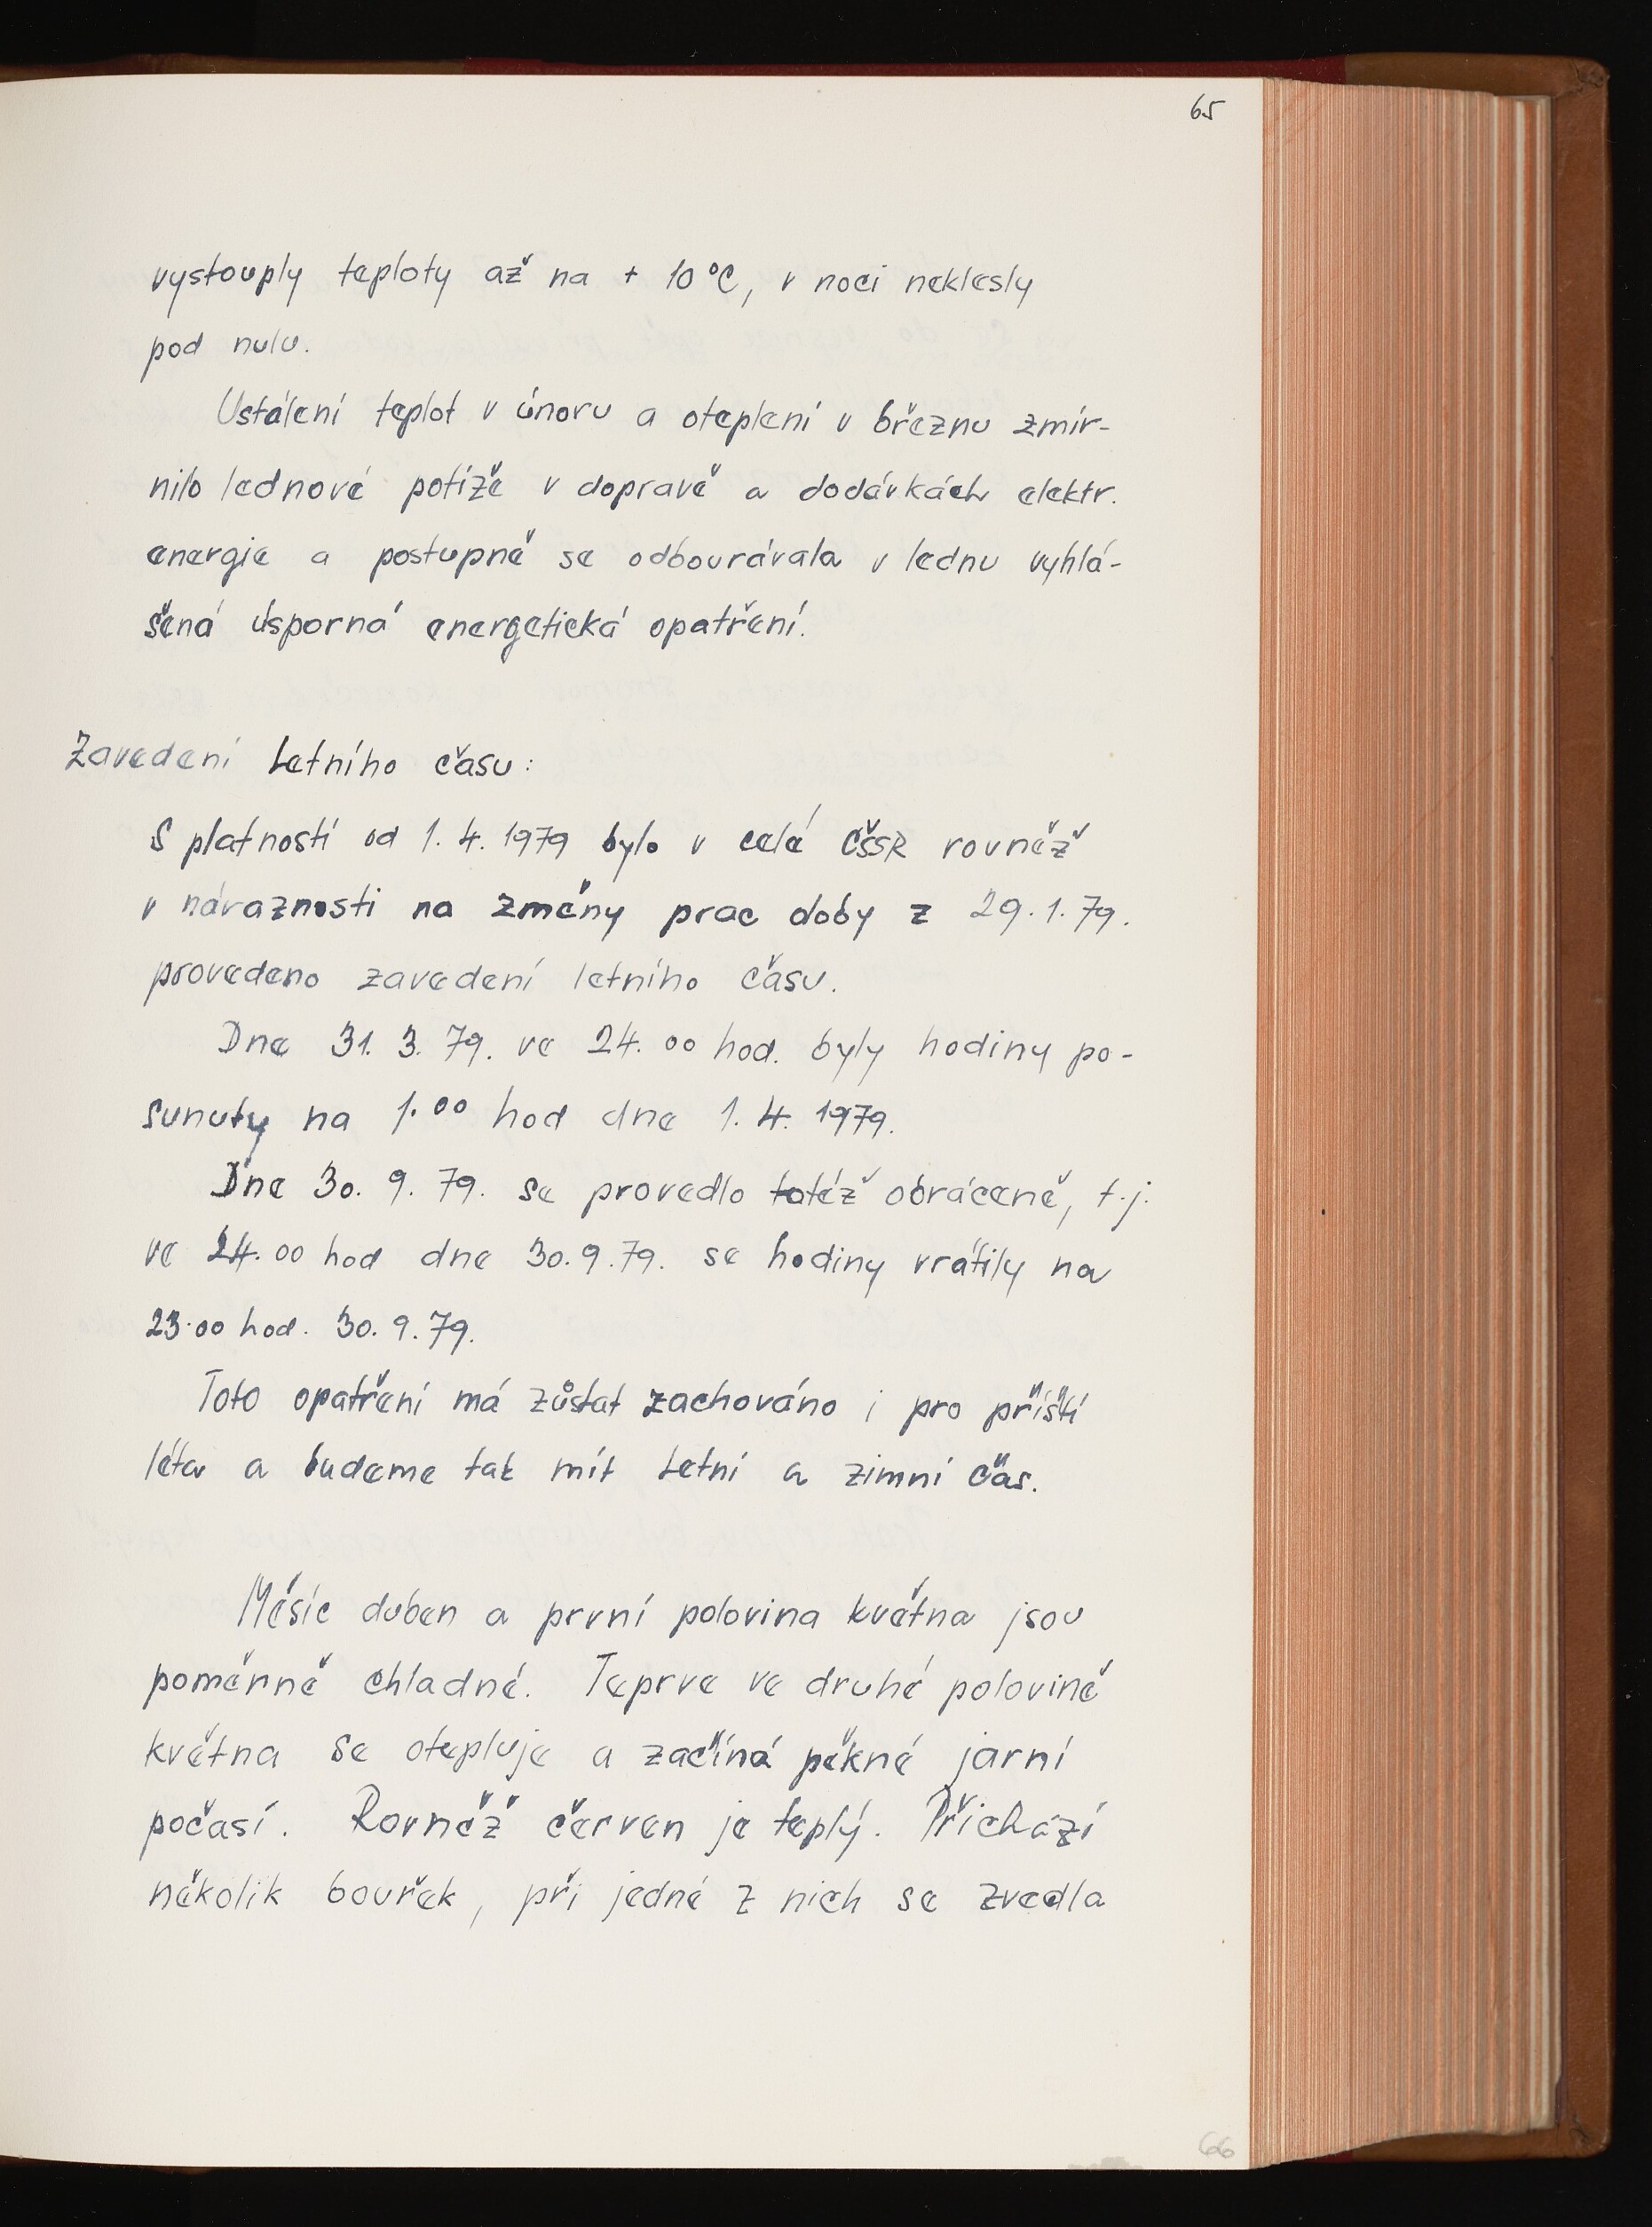 65
vystouply teploty až na + 10 °C, v noci neklesly
pod nulu.
Ustálení teplot v únoru a oteplení v březnu zmír-
nilo lednové potíže v dopravě a dodávkách elektr.
energie a postupně se odbourávala v lednu vyhlá-
šená úsporná energetická opatření.
Zavedení letního času:
S platností od 1. 4. 1979 bylo v celé ČSSR rovněž
v návaznosti na změny prac doby z 29. 1. 79.
provedeno zavedení letního času.
Dne 31. 3. 79. ve 24.00 hod. byly hodiny po-
sunuty na 1.00 hod dne 1. 4. 1979.
Dne 30. 9. 79. se provedlo totéž obráceně, t.j.
ve 24.00 hod dne 30. 9. 79. se hodiny vrátily na
23.00 hod. 30. 9. 79.
Toto opatření má zůstat zachováno i pro příští
léta a budeme tak mít letní a zimní čas.
Měsíc duben a první polovina května jsou
poměrně chladné. Teprve ve druhé polovině
května se otepluje a začíná pěkné jarní
počasí. Rovněž červen je teplý. Přichází
několik bouřek, při jedné z nich se zvedla
66